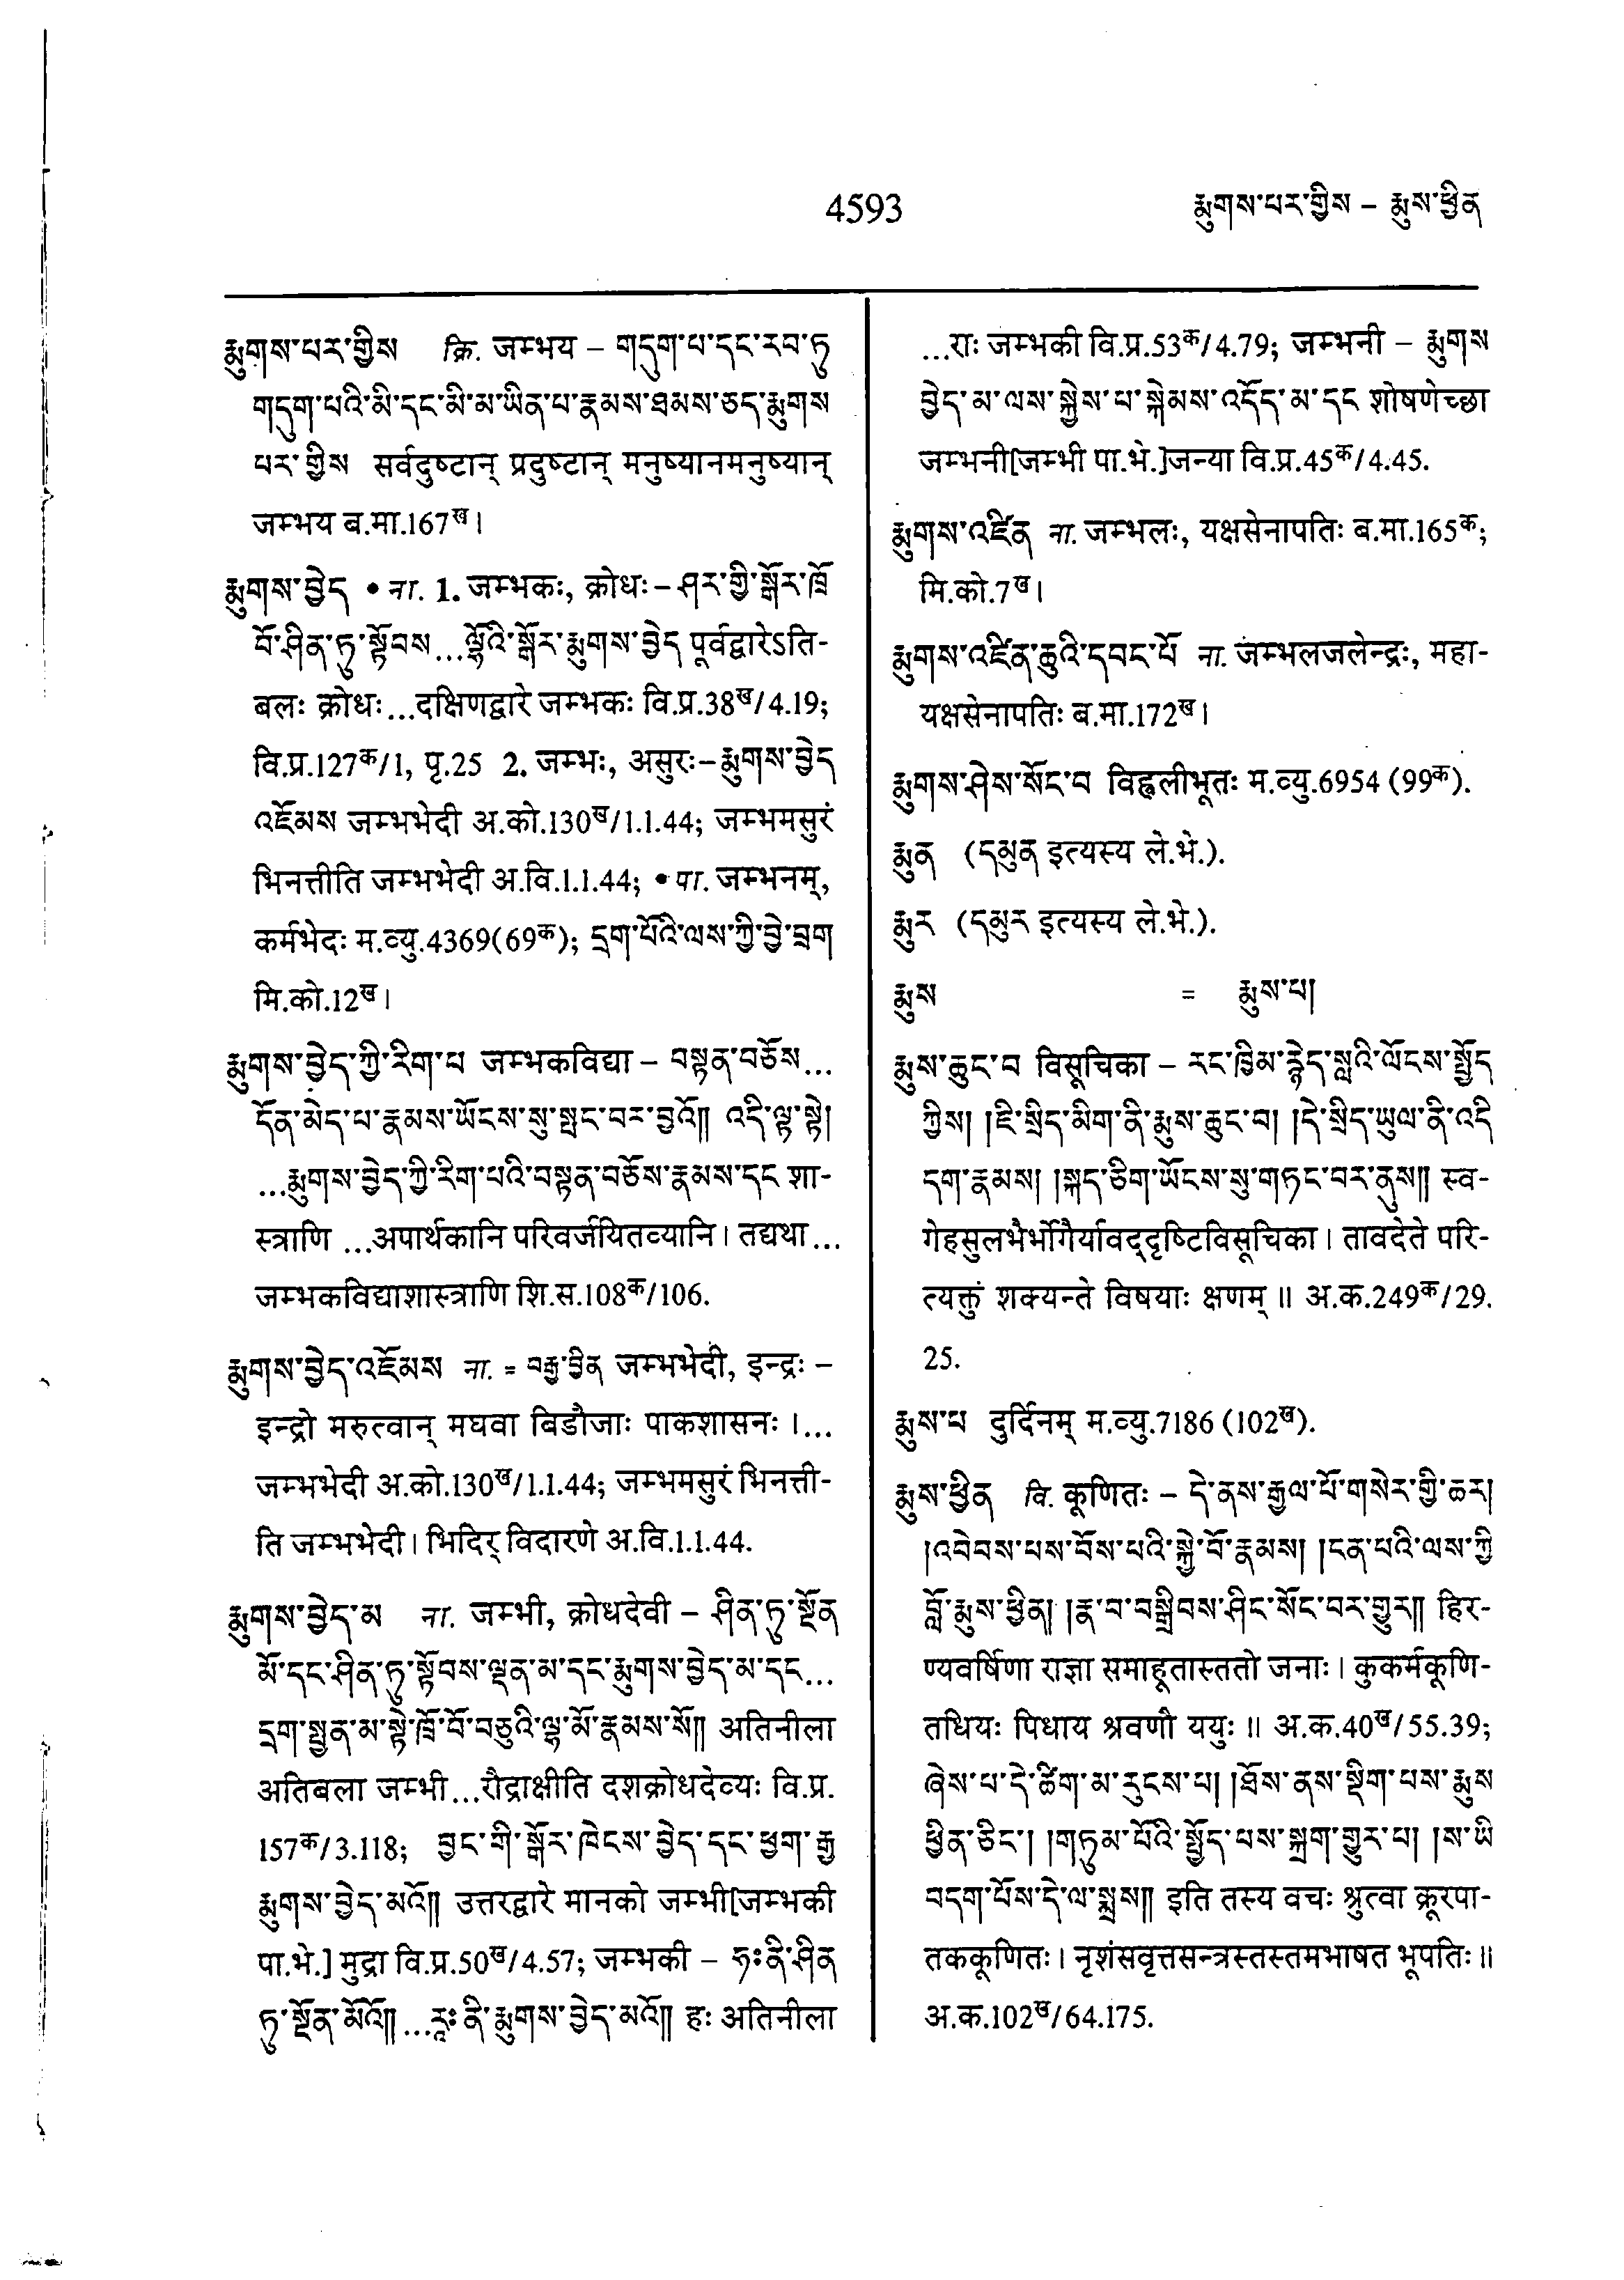 4593
རྨུགས་པར་གྱིས – རྨུས་ཕྱིན
རྨུགས་པར་གྱིས क्रि. जम्भय – གདུག་པ་དང་རབ་ཏུ
གདུག་པའི་མི་དང་མི་མ་ཡིན་པ་རྣམས་ཐམས་ཅད་རྨུགས
པར་གྱིས सर्वदुष्टान् प्रदुष्टान् मनुष्यानमनुष्यान्
जम्भय ब.मा.167ख।
རྨུགས་བྱེད • ना. 1. जम्भकः, क्रोधः – ཤར་གྱི་སྒོར་ཁྲོ
བོ་ཤིན་ཏུ་སྟོབས...ལྷོའི་སྒོར་རྨུགས་བྱེད पूर्वद्वारेऽति-
बलः क्रोधः...दक्षिणद्वारे जम्भकः वि.प्र.38ख/4.19;
वि.प्र.127क/1, पृ.25 2. जम्भः, असुरः – རྨུགས་བྱེད
འཇོམས जम्भभेदी अ.को.130ख/1.1.44; जम्भमसुरं
भिनत्तीति जम्भभेदी अ.वि.1.1.44; • पा. जम्भनम्,
कर्मभेदः म.व्यु.4369(69क); དྲག་པོའི་ལས་ཀྱི་བྱེ་བྲག
मि.को.12ख।
རྨུགས་བྱེད་ཀྱི་རིག་པ जम्भकविद्या – བསྟན་བཅོས...
དོན་མེད་པ་རྣམས་ཡོངས་སུ་སྤང་བར་བྱའོ།། འདི་ལྟ་སྟེ།
...རྨུགས་བྱེད་ཀྱི་རིག་པའི་བསྟན་བཅོས་རྣམས་དང शा-
स्त्राणि ...अपार्थकानि परिवर्जयितव्यानि। तद्यथा...
जम्भकविद्याशास्त्राणि शि.स.108क/106.
རྨུགས་བྱེད་འཇོམས ना. = བརྒྱ་བྱིན जम्भभेदी, इन्द्रः –
इन्द्रो मरुत्वान् मघवा बिडौजाः पाकशासनः ।...
जम्भभेदी अ.को.130ख/1.1.44; जम्भमसुरं भिनत्ती-
ति जम्भभेदी। भिदिर् विदारणे अ.वि.1.1.44.
རྨུགས་བྱེད་མ ना. जम्भी, क्रोधदेवी – ཤིན་ཏུ་སྔོན
མོ་དང་ཤིན་ཏུ་སྟོབས་ལྡན་མ་དང་རྨུགས་བྱེད་མ་དང...
དྲག་སྤྱན་མ་སྟེ་ཁྲོ་བོ་བཅུའི་ལྷ་མོ་རྣམས་སོ།། अतिनीला
अतिबला जम्भी...रौद्राक्षीति दशक्रोधदेव्यः वि.प्र.
157क/3.118; བྱང་གི་སྒོར་ཁེངས་བྱེད་དང་ཕྱག་རྒྱ
རྨུགས་བྱེད་མའོ།། उत्तरद्वारे मानको जम्भी[जम्भकी
पा.भे.] मुद्रा वि.प्र.50ख/4.57; जम्भकी – ཧཿནི་ཤིན
ཏུ་སྔོན་མོའོ།།...རཱཿ ནི་རྨུགས་བྱེད་མའོ།། हः अतिनीला
...राः जम्भकी वि.प्र.53क/4.79; जम्भनी – རྨུགས
བྱེད་མ་ལས་སྐྱེས་པ་སྐེམས་འདོད་མ་དང शोषणेच्छा
जम्भनी[जम्भी पा.भे.]जन्या वि.प्र.45क/4.45.
རྨུགས་འཛིན ना. जम्भलः, यक्षसेनापतिः ब.मा.165क;
मि.को.7ख।
རྨུགས་འཛིན་ཆུའི་དབང་པོ ना. जम्भलजलेन्द्रः, महा-
यक्षसेनापतिः ब.मा.172ख।
རྨུགས་ཤེས་སོང་བ विह्वलीभूतः म.व्यु.6954 (99क).
རྨུན (དམུན इत्यस्य ले.भे.).
རྨུར (དམུར इत्यस्य ले.भे.).
རྨུས = རྨུས་པ།
རྨུས་ཆུང་བ विसूचिका – རང་ཁྱིམ་རྙེད་སླའི་ལོངས་སྤྱོད
ཀྱིས། །ཇི་སྲིད་མིག་ནི་རྨུས་ཆུང་བ། །དེ་སྲིད་ཡུལ་ནི་འདི
དག་རྣམས། །སྐད་ཅིག་ཡོངས་སུ་གཏང་བར་ནུས།། स्व-
गेहसुलभैर्भोगैर्यावद्दृष्टिविसूचिका। तावदेते परि-
त्यक्तुं शक्यन्ते विषयाः क्षणम् ॥ अ.क.249क/29.
25.
རྨུས་པ दुर्दिनम् म.व्यु.7186 (102ख).
རྨུས་ཕྱིན वि. कूणितः – དེ་ནས་རྒྱལ་པོ་གསེར་གྱི་ཆར།
།འབེབས་པས་བོས་པའི་སྐྱེ་བོ་རྣམས། །ངན་པའི་ལས་ཀྱི
བློ་རྨུས་ཕྱིན། །རྣ་བ་བསྒྲིབས་ཤིང་སོང་བར་གྱུར།། हिर-
ण्यवर्षिणा राज्ञा समाहूतास्ततो जनाः। कुकर्मकूणि-
तधियः पिधाय श्रवणौ ययुः ॥ अ.क.40ख/55.39;
ཞེས་པ་དེ་ཚིག་མ་རུངས་པ། །ཐོས་ནས་སྡིག་པས་རྨུས
ཕྱིན་ཅིང་། །གཏུམ་པོའི་སྤྱོད་པས་སྐྲག་གྱུར་པ། །ས་ཡི
བདག་པོས་དེ་ལ་སྨྲས།། इति तस्य वचः श्रुत्वा क्रूरपा-
तककूणितः। नृशंसवृत्तसन्त्रस्तस्तमभाषत भूपतिः॥
अ.क.102ख/64.175.